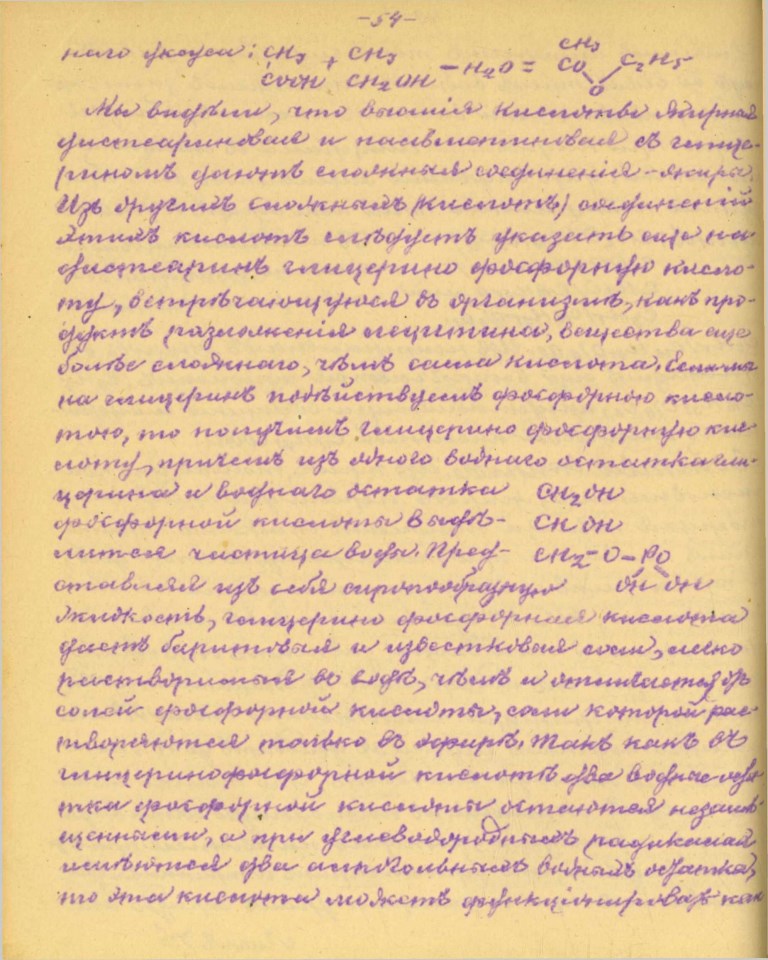 -54-
наго уксуса: CH3 + CH3 — H2O = CH3
COOH CH2OH CO O C2H5
Мы видѣли, что высшія кислоты жирныя
стеариновая и пальмитиновая съ глице-
риномъ даютъ сложныя соединенія - жиры.
Изъ другихъ сложныхъ (кислотъ) соединеній
этихъ кислотъ слѣдуетъ указать еще на
глицерино фосфорную кисло-
ту, встрѣчающуюся въ организмѣ, какъ про-
дуктъ разложенія лецитина, вещества еще
болѣе сложнаго, чѣмъ сама кислота. Если мы
на глицеринъ подѣйствуемъ фосфорною кисло-
тою, то получимъ глицерино фосфорную кис-
лоту, причемъ изъ одного воднаго остатка гли-
церина и воднаго остатка CH2OH
фосфорной кислоты выдѣ- CHOH
лится частица воды. Пред- CH2-O-PO
ставляя изъ себя сиропообразную OH OH
жидкость, глицерино фосфорная кислота
даетъ баритовыя и известковыя соли, легко
растворимыя въ водѣ, чѣмъ и отличается отъ
солей фосфорной кислоты, соли которой рас-
творяются только въ эфирѣ. Такъ какъ въ
глицеринофосфорной кислотѣ два водные оста-
тка фосфорной кислоты остаются незамѣ-
щенными, а при углеводородныхъ радикалахъ
имѣются два алкогольныхъ водныхъ остатка,
то эта кислота можетъ функціонировать как